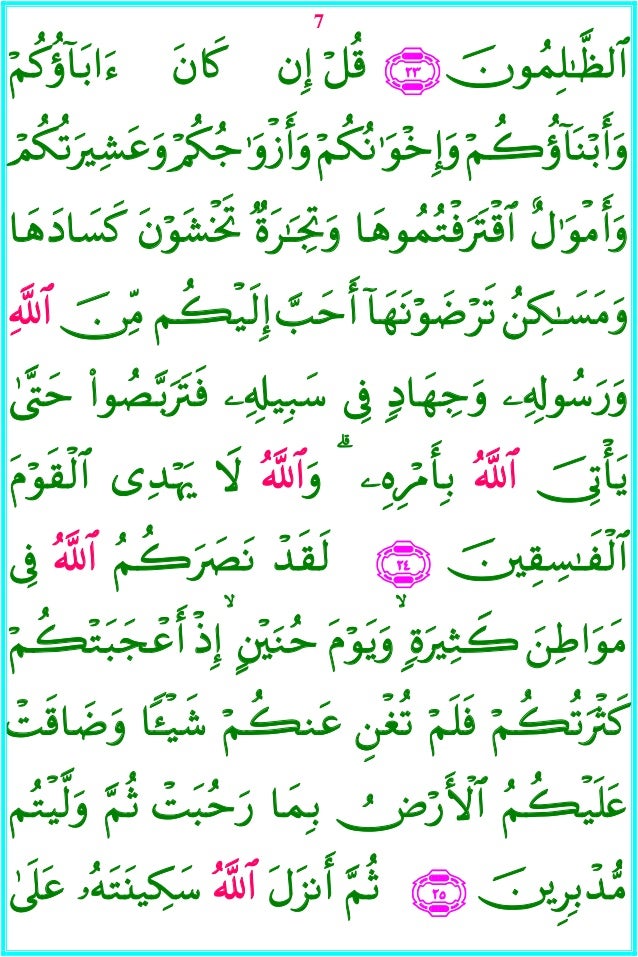 7
ٱلظَّـٰلِمُونَ ٢٣ قُلْ إِن كَانَ ءَابَآؤُكُمْ
وَأَبْنَآؤُكُمْ وَإِخْوَٰنُكُمْ وَأَزْوَٰجُكُمْ وَعَشِيرَتُكُمْ
وَأَمْوَٰلٌ ٱقْتَرَفْتُمُوهَا وَتِجَـٰرَةٌ تَخْشَوْنَ كَسَادَهَا
وَمَسَـٰكِنُ تَرْضَوْنَهَآ أَحَبَّ إِلَيْكُم مِّنَ ٱللَّهِ
وَرَسُولِهِۦ وَجِهَادٍ فِى سَبِيلِهِۦ فَتَرَبَّصُوا۟ حَتَّىٰ
يَأْتِىَ ٱللَّهُ بِأَمْرِهِۦ ۗ وَٱللَّهُ لَا يَهْدِى ٱلْقَوْمَ
ٱلْفَـٰسِقِينَ ٢٤ لَقَدْ نَصَرَكُمُ ٱللَّهُ فِى
مَوَاطِنَ كَثِيرَةٍ ۙ وَيَوْمَ حُنَيْنٍ ۙ إِذْ أَعْجَبَتْكُمْ
كَثْرَتُكُمْ فَلَمْ تُغْنِ عَنكُمْ شَيْـًٔا وَضَاقَتْ
عَلَيْكُمُ ٱلْأَرْضُ بِمَا رَحُبَتْ ثُمَّ وَلَّيْتُم
مُّدْبِرِينَ ٢٥ ثُمَّ أَنزَلَ ٱللَّهُ سَكِينَتَهُۥ عَلَىٰ